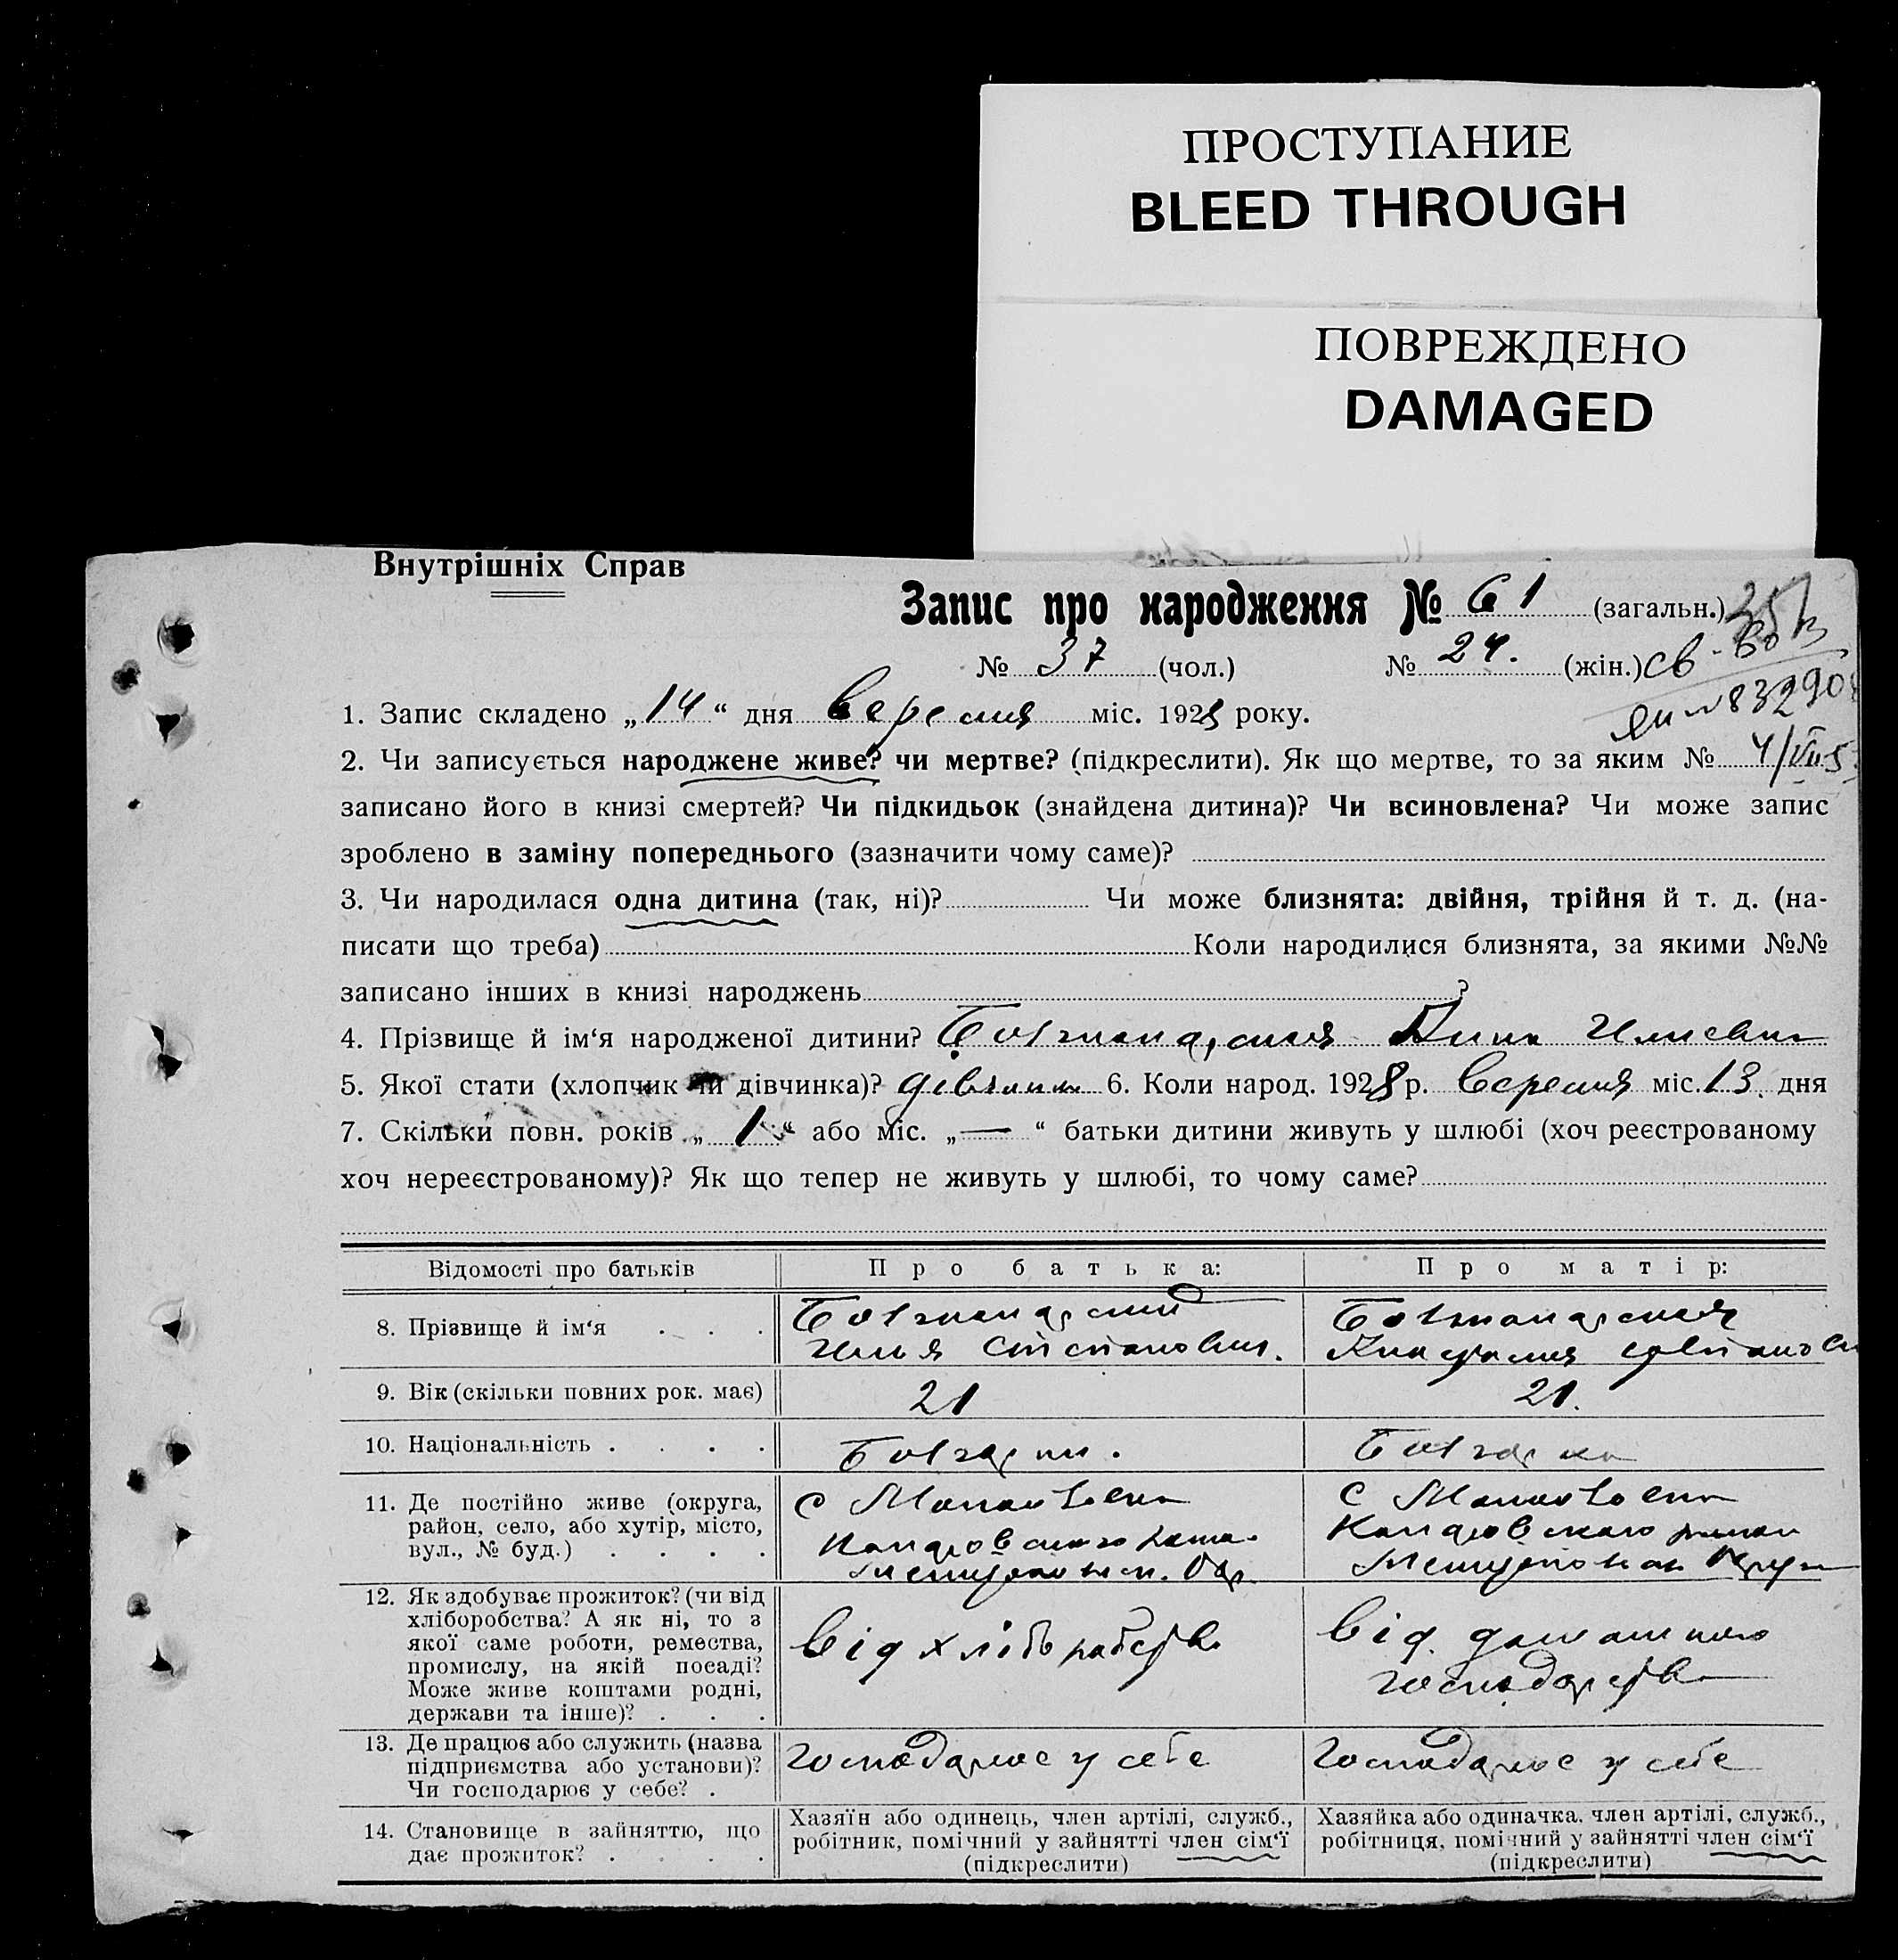 ПРОСТУПАНИЕ
BLEED THROUGH
ПОВРЕЖДЕНО
DAMAGED
Внутрішніх Справ
Запис про народження № 61 (загальн.)
№ 37 (чол.) № 24. (жін.)
1. Запис складено „14“ дня вересня міс. 1928 року.
2. Чи записується народжене живе? чи мертве? (підкреслити). Як що мертве, то за яким №
записано його в книзі смертей? Чи підкидьок (знайдена дитина)? Чи всиновлена? Чи може запис
зроблено в заміну попереднього (зазначити чому саме)?
3. Чи народилася одна дитина (так, ні)? Чи може близнята: двійня, трійня й т. д. (на-
писати що треба) Коли народилися близнята, за якими №№
записано інших в книзі народжень ?
4. Прізвище й ім‘я народженої дитини?
5. Якої стати (хлопчик чи дівчинка)? дівчинка 6. Коли народ. 1928 р. вересня міс. 13 дня
7. Скільки повн. років „1“ або міс. „—“ батьки дитини живуть у шлюбі (хоч реєстрованому
хоч нереєстрованому)? Як що тепер не живуть у шлюбі, то чому саме?
Відомості про батьків Про батька: Про матір:
8. Прізвище й ім‘я
Илья Степанович.
9. Вік (скільки повних рок. має) 21 21.
10. Національність . . . . Болгарин. Болгарка
11. Де постійно живе (округа,
район, село, або хутір, місто,
вул., № буд.) . . . .
12. Як здобуває прожиток? (чи від
хліборобства? А як ні, то з
якої саме роботи, ремества,
промислу, на якій посаді?
Може живе коштами родні,
держави та інше)? . . .
від хліборобства
від домашнего
господарства
13. Де працює або служить (назва
підприємства або установи)?
Чи господарює у себе? .
Господарює у себе Господарює у себе
14. Становище в зайняттю, що
дає прожиток? . . . .
Хазяїн або одинець, член артілі, служб.,
робітник, помічний у зайнятті член сім‘ї
(підкреслити)
Хазяйка або одиначка, член артілі, служб.,
робітниця, помічний у зайнятті член сім‘ї
(підкреслити)